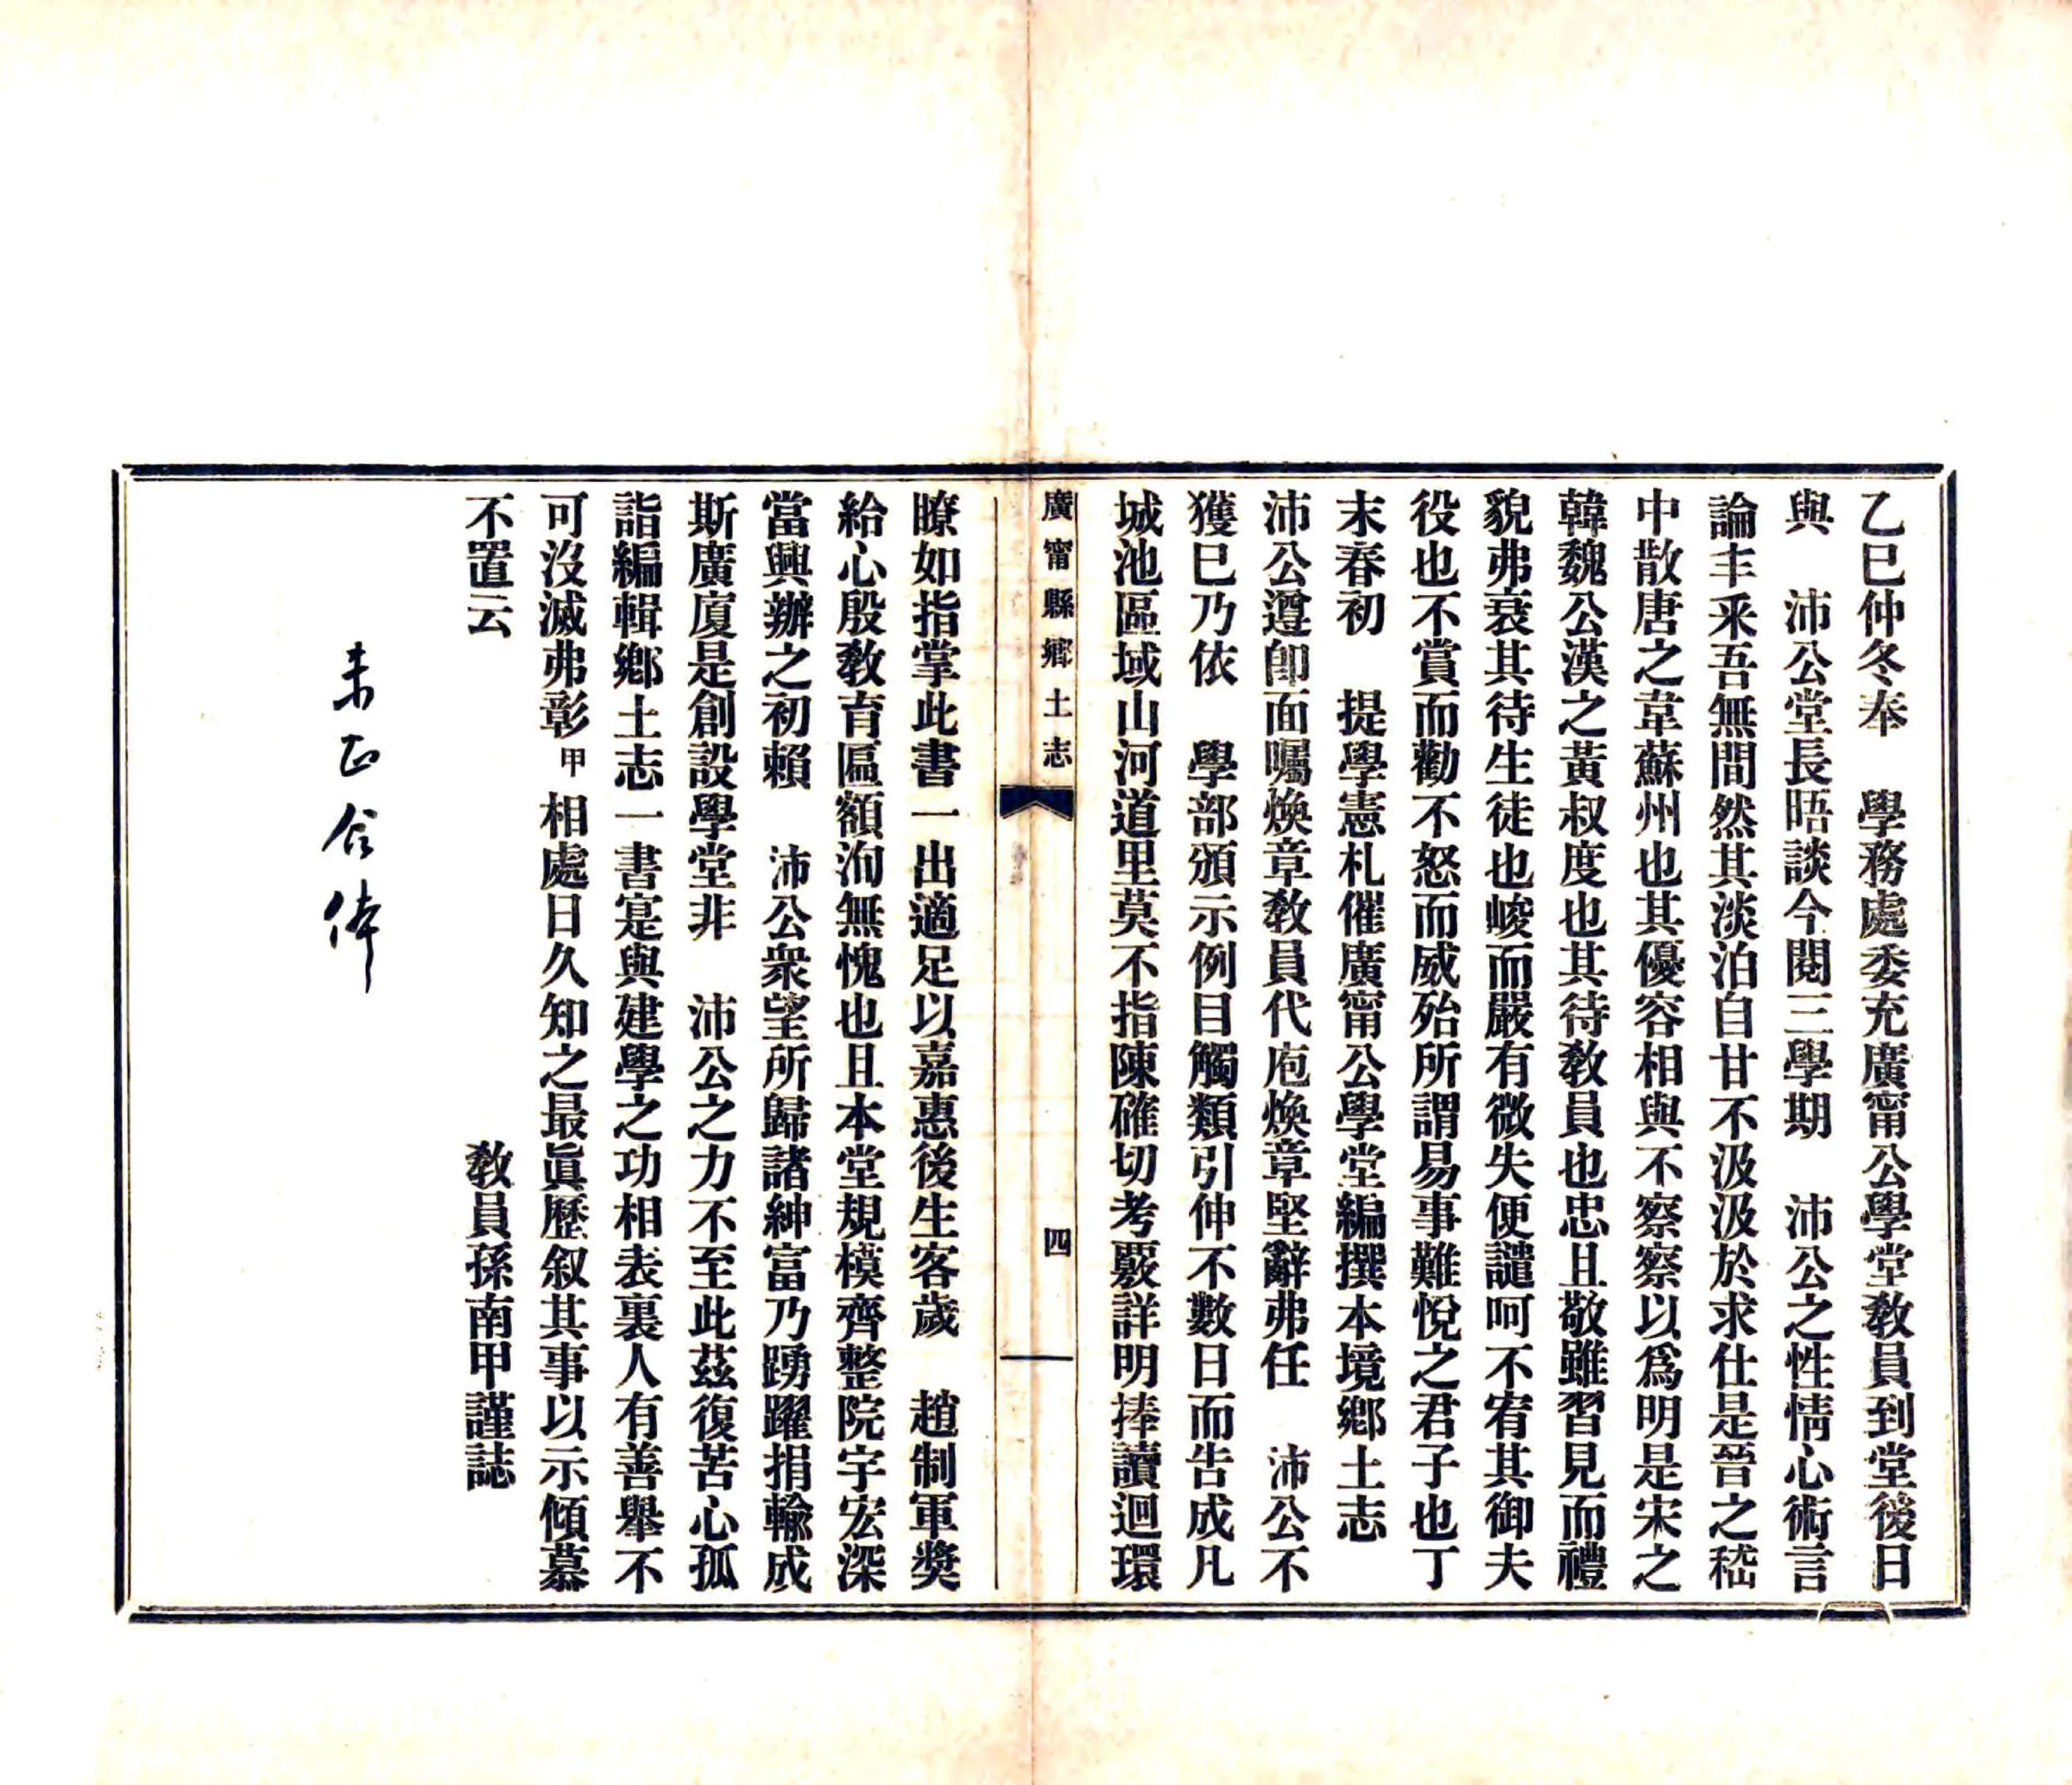 乙巳仲冬奉　學務處委充廣甯公學堂教員到堂後日
與　沛公堂長晤談今閱三學期　沛公之性情心術言
論丰采吾無間然其淡泊自甘不汲汲於求仕是晉之嵇
中散唐之韋蘇州也其優容相與不察察以爲明是宋之
韓魏公漢之黃叔度也其待教員也忠且敬雖習見而禮
貌弗衰其待生徒也峻而嚴有微失便譴呵不宥其御夫
役也不賞而勸不怒而威殆所謂易事難悅之君子也丁
末春初　提學憲札催廣甯公學堂編撰本境鄉土志
沛公遵卽面囑煥章教員代庖煥章堅辭弗任　沛公不
獲巳乃依　學部頒示例目觸類引伸不數日而告成凡
城池區域山河道里莫不指陳確切考覈詳明捧讀迴環
廣甯縣鄉土志
四
瞭如指掌此書一出適足以嘉惠後生客歲　趙制軍獎
給心殷教育匾額洵無愧也且本堂規模齊整院宇宏深
當興辦之初賴　沛公衆望所歸諸紳富乃踴躍捐輸成
斯廣廈是創設學堂非　沛公之力不至此茲復苦心孤
詣編輯鄉土志一書寔與建學之功相表裏人有善舉不
可沒滅弗彰甲相處日久知之最眞歷叙其事以示傾慕
不置云　教員孫南甲謹誌